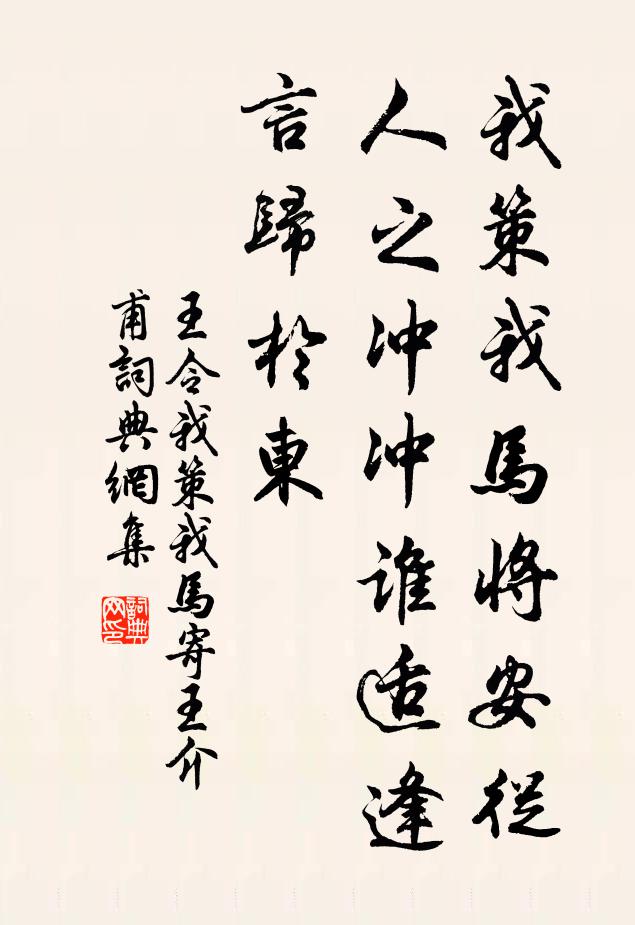 我策我馬將安從
人之冲冲誰适逢
言歸於東
王令我策我馬寄王介
甫詞典網集
詞典网印